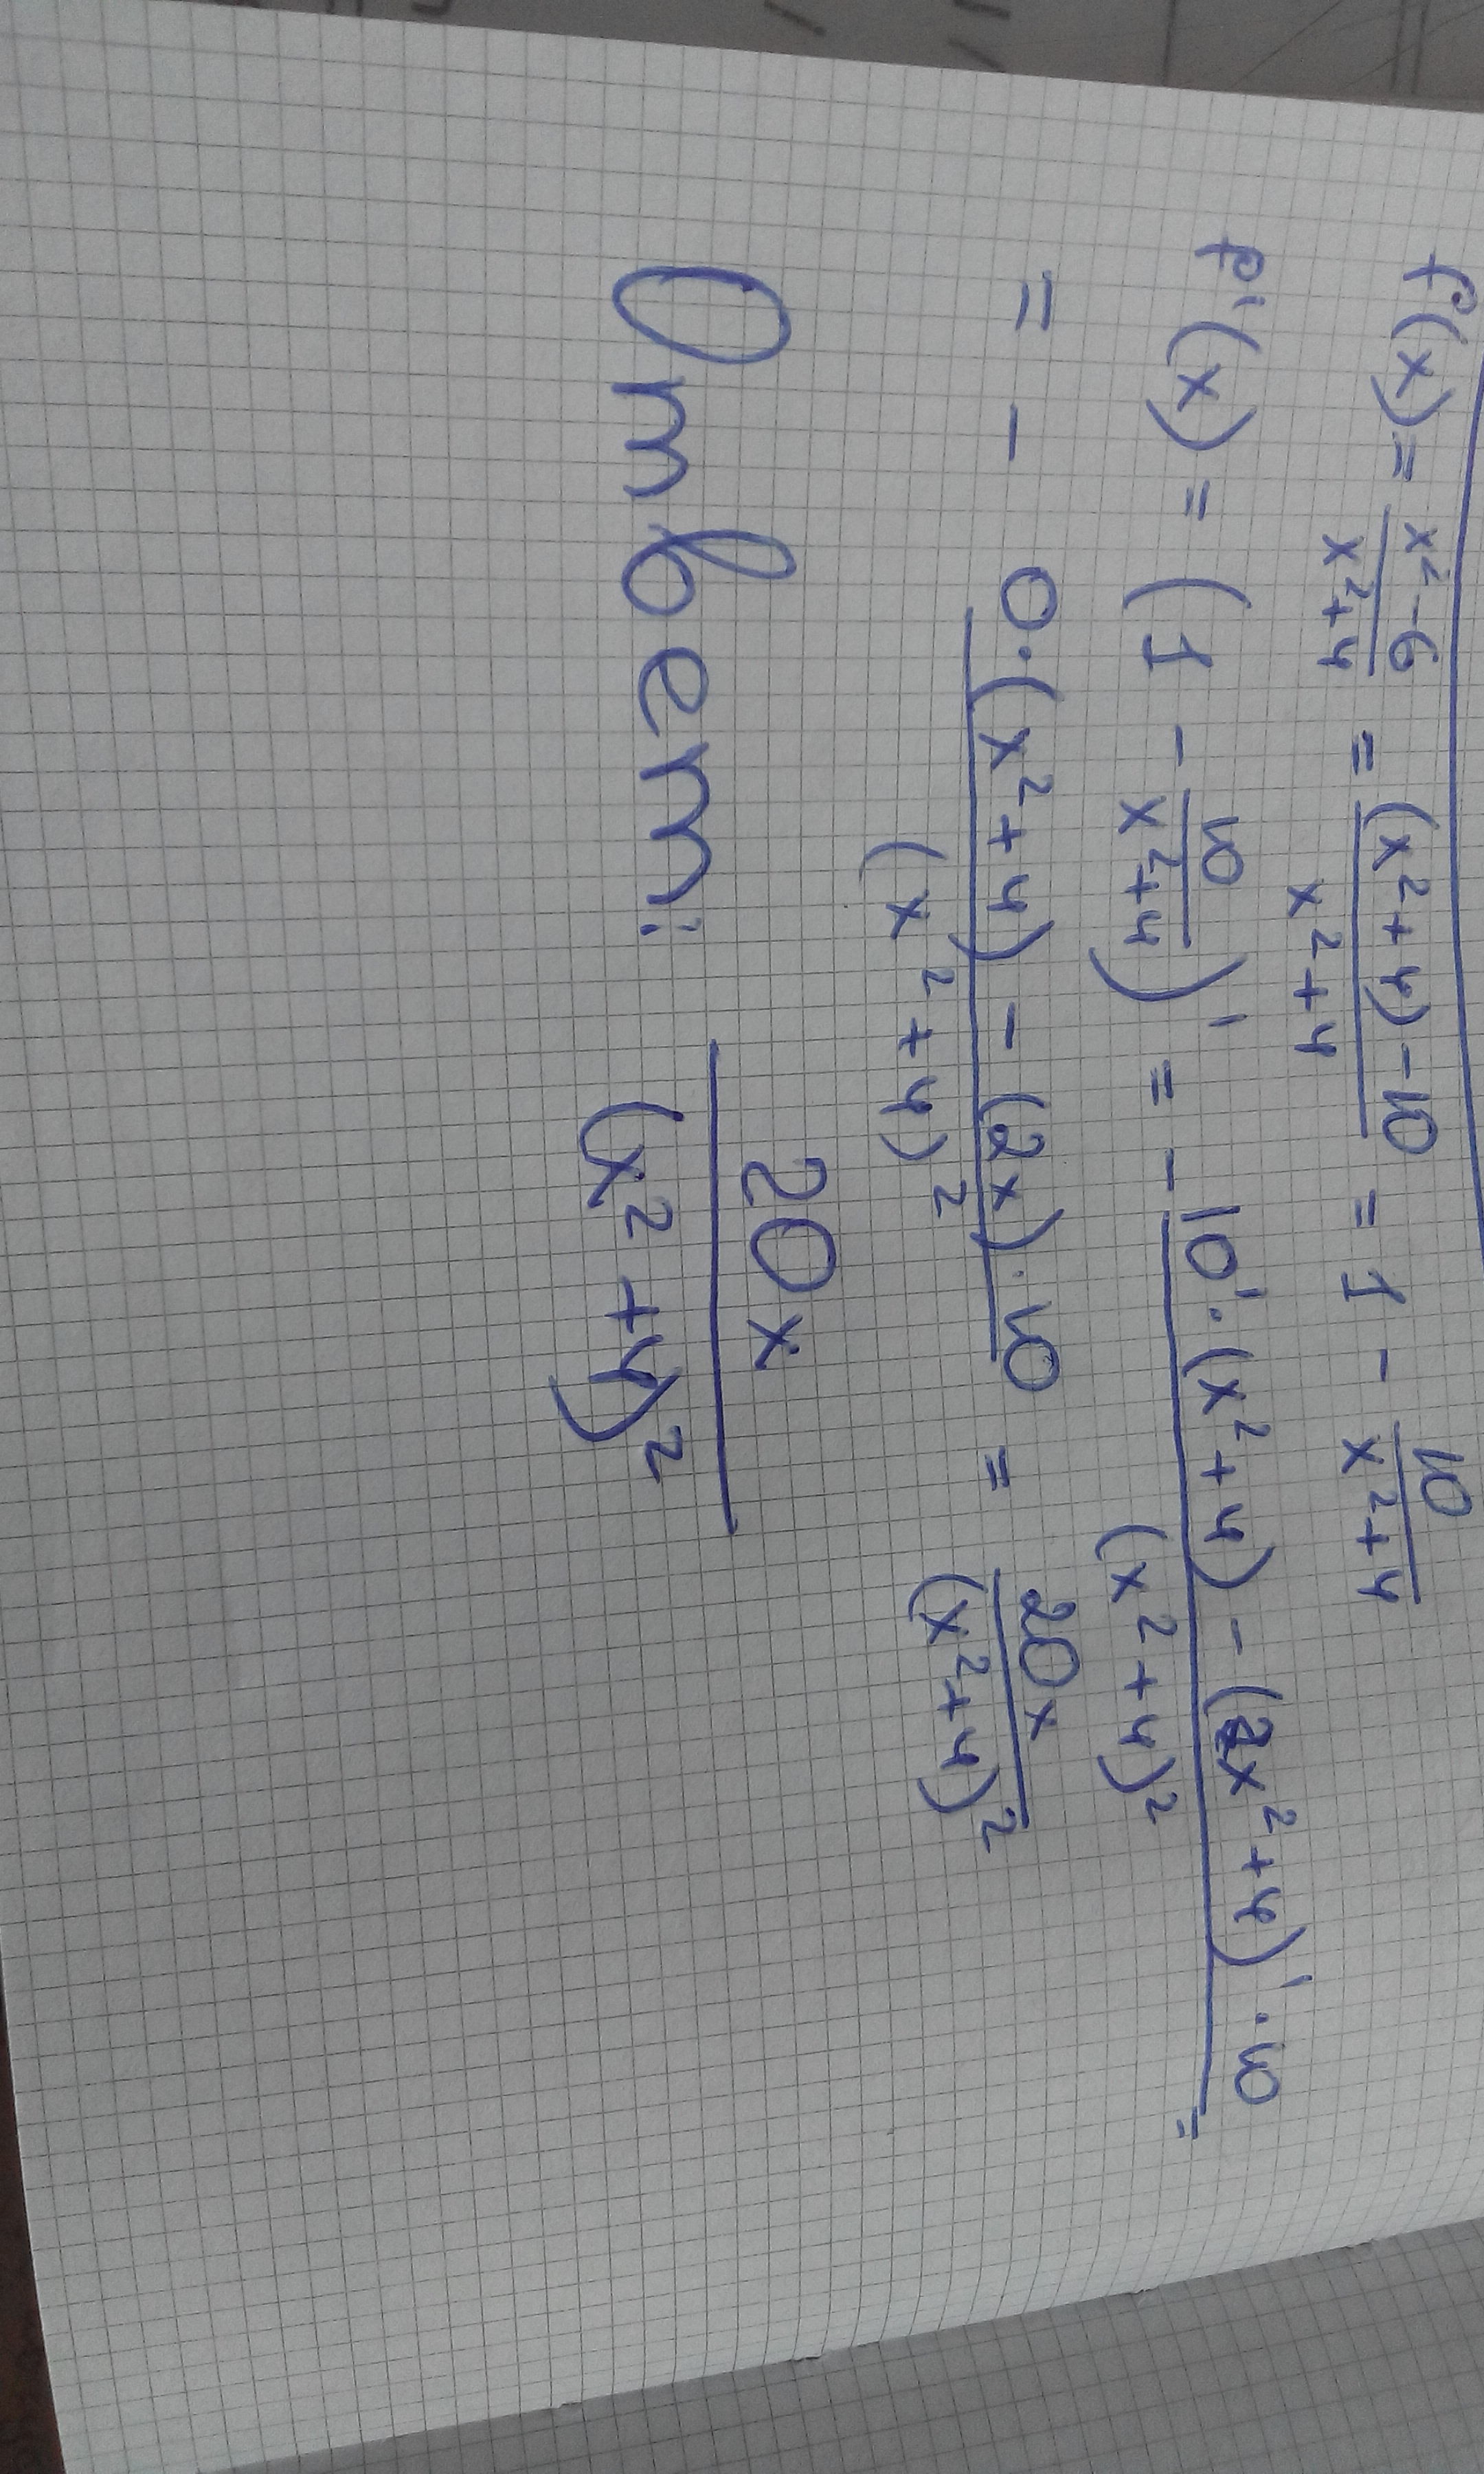 f(x) = \frac{x^2-6}{x^2+4} = \frac{(x^2+4)-10}{x^2+4} = 1 - \frac{10}{x^2+4}
f'(x) = (1 - \frac{10}{x^2+4})' = - \frac{10'·(x^2+4) - (x^2+4)'·10}{(x^2+4)^2} =
= - \frac{0·(x^2+4) - (2x)·10}{(x^2+4)^2} = \frac{20x}{(x^2+4)^2}
Ответ: \frac{20x}{(x^2+4)^2}